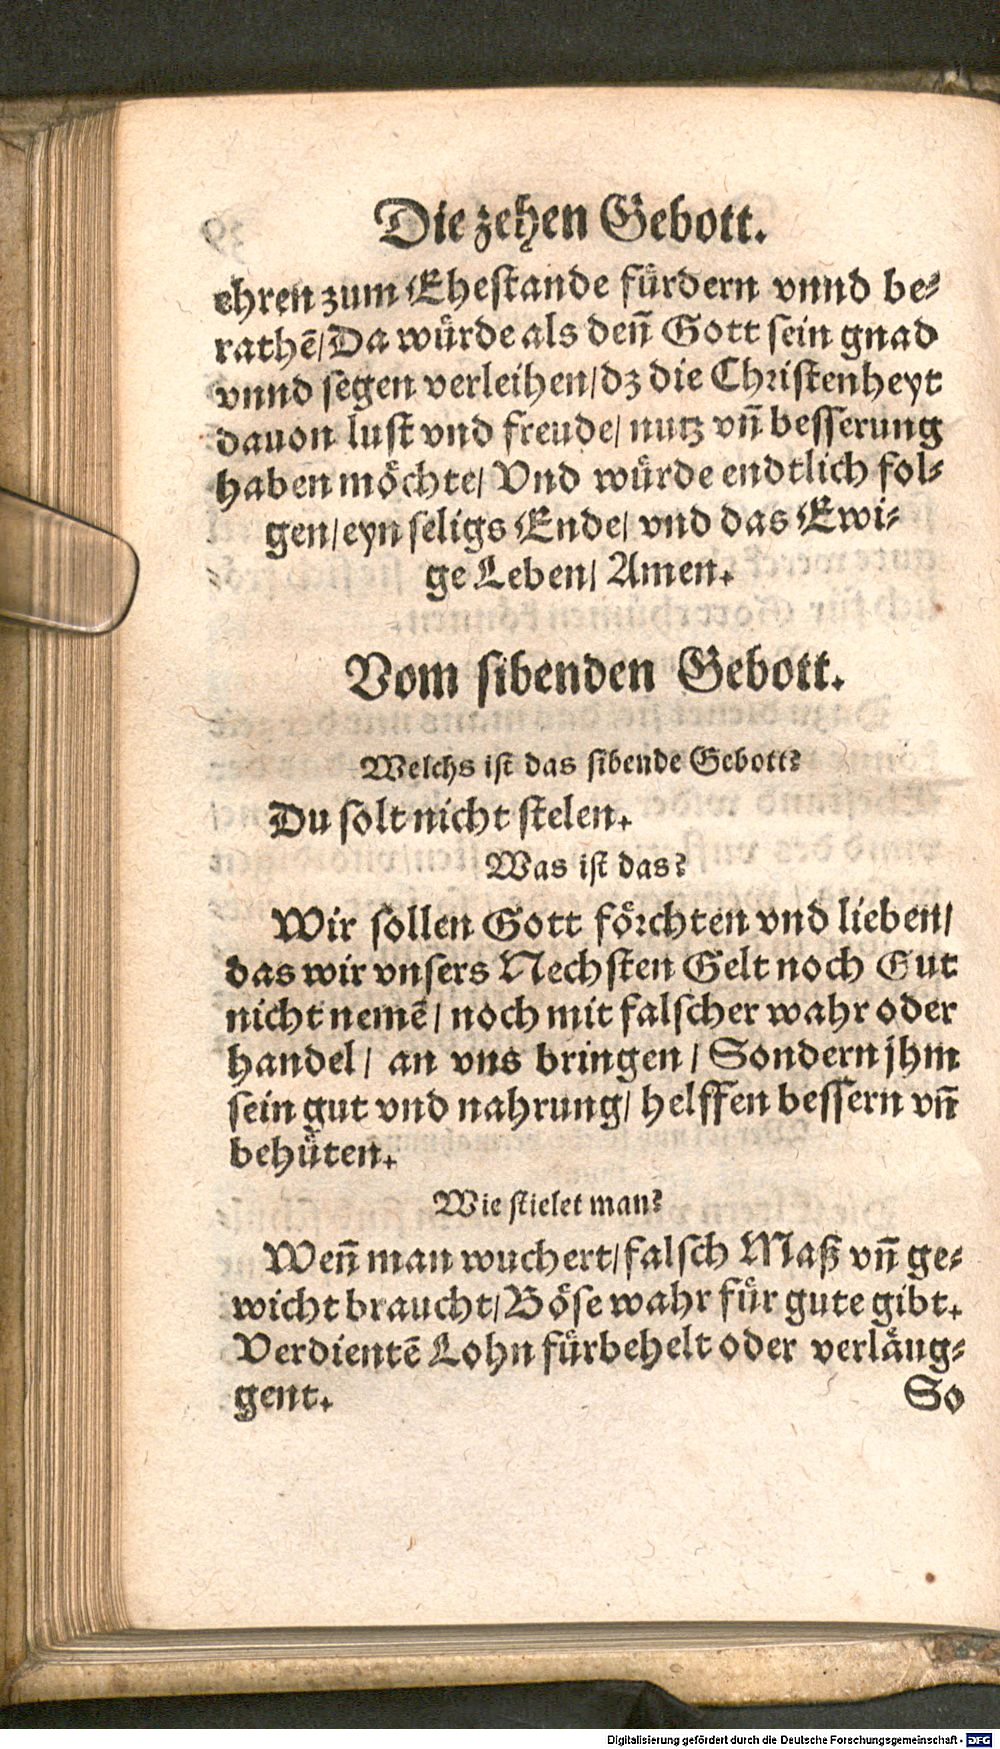 Die zehen Gebott.
ehren zum Ehestande fürdern vnnd be-
rathẽ/ Da würde als deñ Gott sein gnad
vnnd segen verleihen/ dz die Christenheyt
dauon lust vnd freude/ nutz vñ besserung
haben möchte/ Vnd würde endtlich fol-
gen/ eyn seligs Ende/ vnd das Ewi-
ge Leben/ Amen.
Vom sibenden Gebott.
Welchs ist das sibende Gebott?
Du solt nicht stelen.
Was ist das?
Wir sollen Gott förchten vnd lieben/
das wir vnsers Nechsten Gelt noch Gut
nicht nemẽ/ noch mit falscher wahr oder
handel/ an vns bringen/ Sondern jhm
sein gut vnd nahrung/ helffen bessern vñ
behüten.
Wie stielet man?
Weñ man wuchert/ falsch Maß vñ ge-
wicht braucht/ Böse wahr für gute gibt.
Verdientẽ Lohn fürbehelt oder verläug-
gent.
So
Digitalisierung gefördert durch die Deutsche Forschungsgemeinschaft - DFG